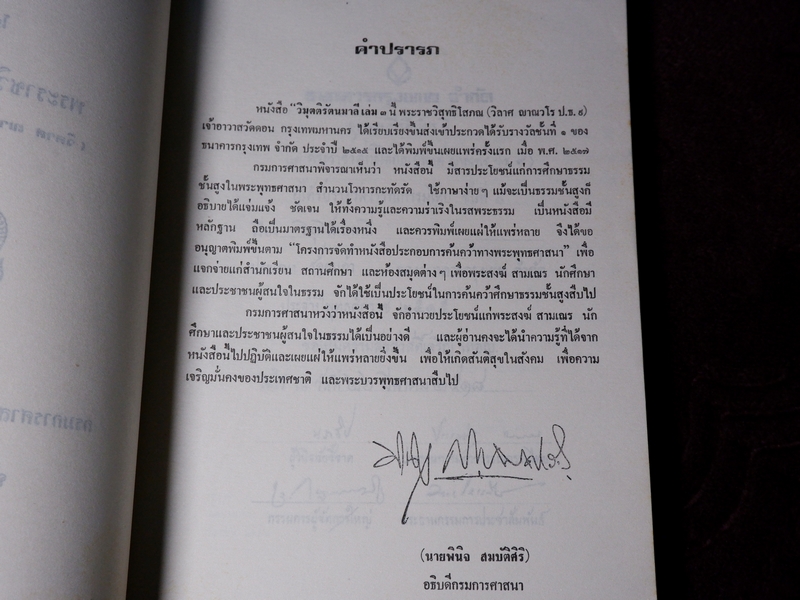 คำปรารภ
หนังสือ “วิมุตติรัตนมาลี เล่ม ๓ นี้ พระราชวิสุทธิโสภณ (วิลาศ ญาณวโร ป.ธ. ๙)
เจ้าอาวาสวัดดอน กรุงเทพมหานคร ได้เรียบเรียงขึ้นส่งเข้าประกวดได้รับรางวัลชั้นที่ ๑ ของ
ธนาคารกรุงเทพ จำกัด ประจำปี ๒๕๑๕ และได้พิมพ์ขึ้นเผยแพร่ครั้งแรก เมื่อ พ.ศ. ๒๕๑๗
กรมการศาสนาพิจารณาเห็นว่า หนังสือนี้ มีสารประโยชน์แก่การศึกษาธรรม
ชั้นสูงในพระพุทธศาสนา สำนวนโวหารกะทัดรัด ใช้ภาษาง่าย ๆ แม้จะเป็นธรรมชั้นสูงก็
อธิบายได้แจ่มแจ้ง ชัดเจน ให้ทั้งความรู้และความร่าเริงในรสพระธรรม เป็นหนังสือมี
หลักฐาน ถือเป็นมาตรฐานได้เรื่องหนึ่ง และควรพิมพ์เผยแผ่ให้แพร่หลาย จึงได้ขอ
อนุญาตพิมพ์ขึ้นตาม “โครงการจัดทำหนังสือประกอบการค้นคว้าทางพระพุทธศาสนา” เพื่อ
แจกจ่ายแก่สำนักเรียน สถานศึกษา และห้องสมุดต่าง ๆ เพื่อพระสงฆ์ สามเณร นักศึกษา
และประชาชนผู้สนใจในธรรม จักได้ใช้เป็นประโยชน์ในการค้นคว้าศึกษาธรรมชั้นสูงสืบไป
กรมการศาสนาหวังว่าหนังสือนี้ จักอำนวยประโยชน์แก่พระสงฆ์ สามเณร นัก
ศึกษาและประชาชนผู้สนใจในธรรมได้เป็นอย่างดี และผู้อ่านคงจะได้นำความรู้ที่ได้จาก
หนังสือนี้ไปปฏิบัติและเผยแผ่ให้แพร่หลายยิ่งขึ้น เพื่อให้เกิดสันติสุขในสังคม เพื่อความ
เจริญมั่นคงของประเทศชาติ และพระบวรพุทธศาสนาสืบไป
(นายพินิจ สมบัติศิริ)
อธิบดีกรมการศาสนา